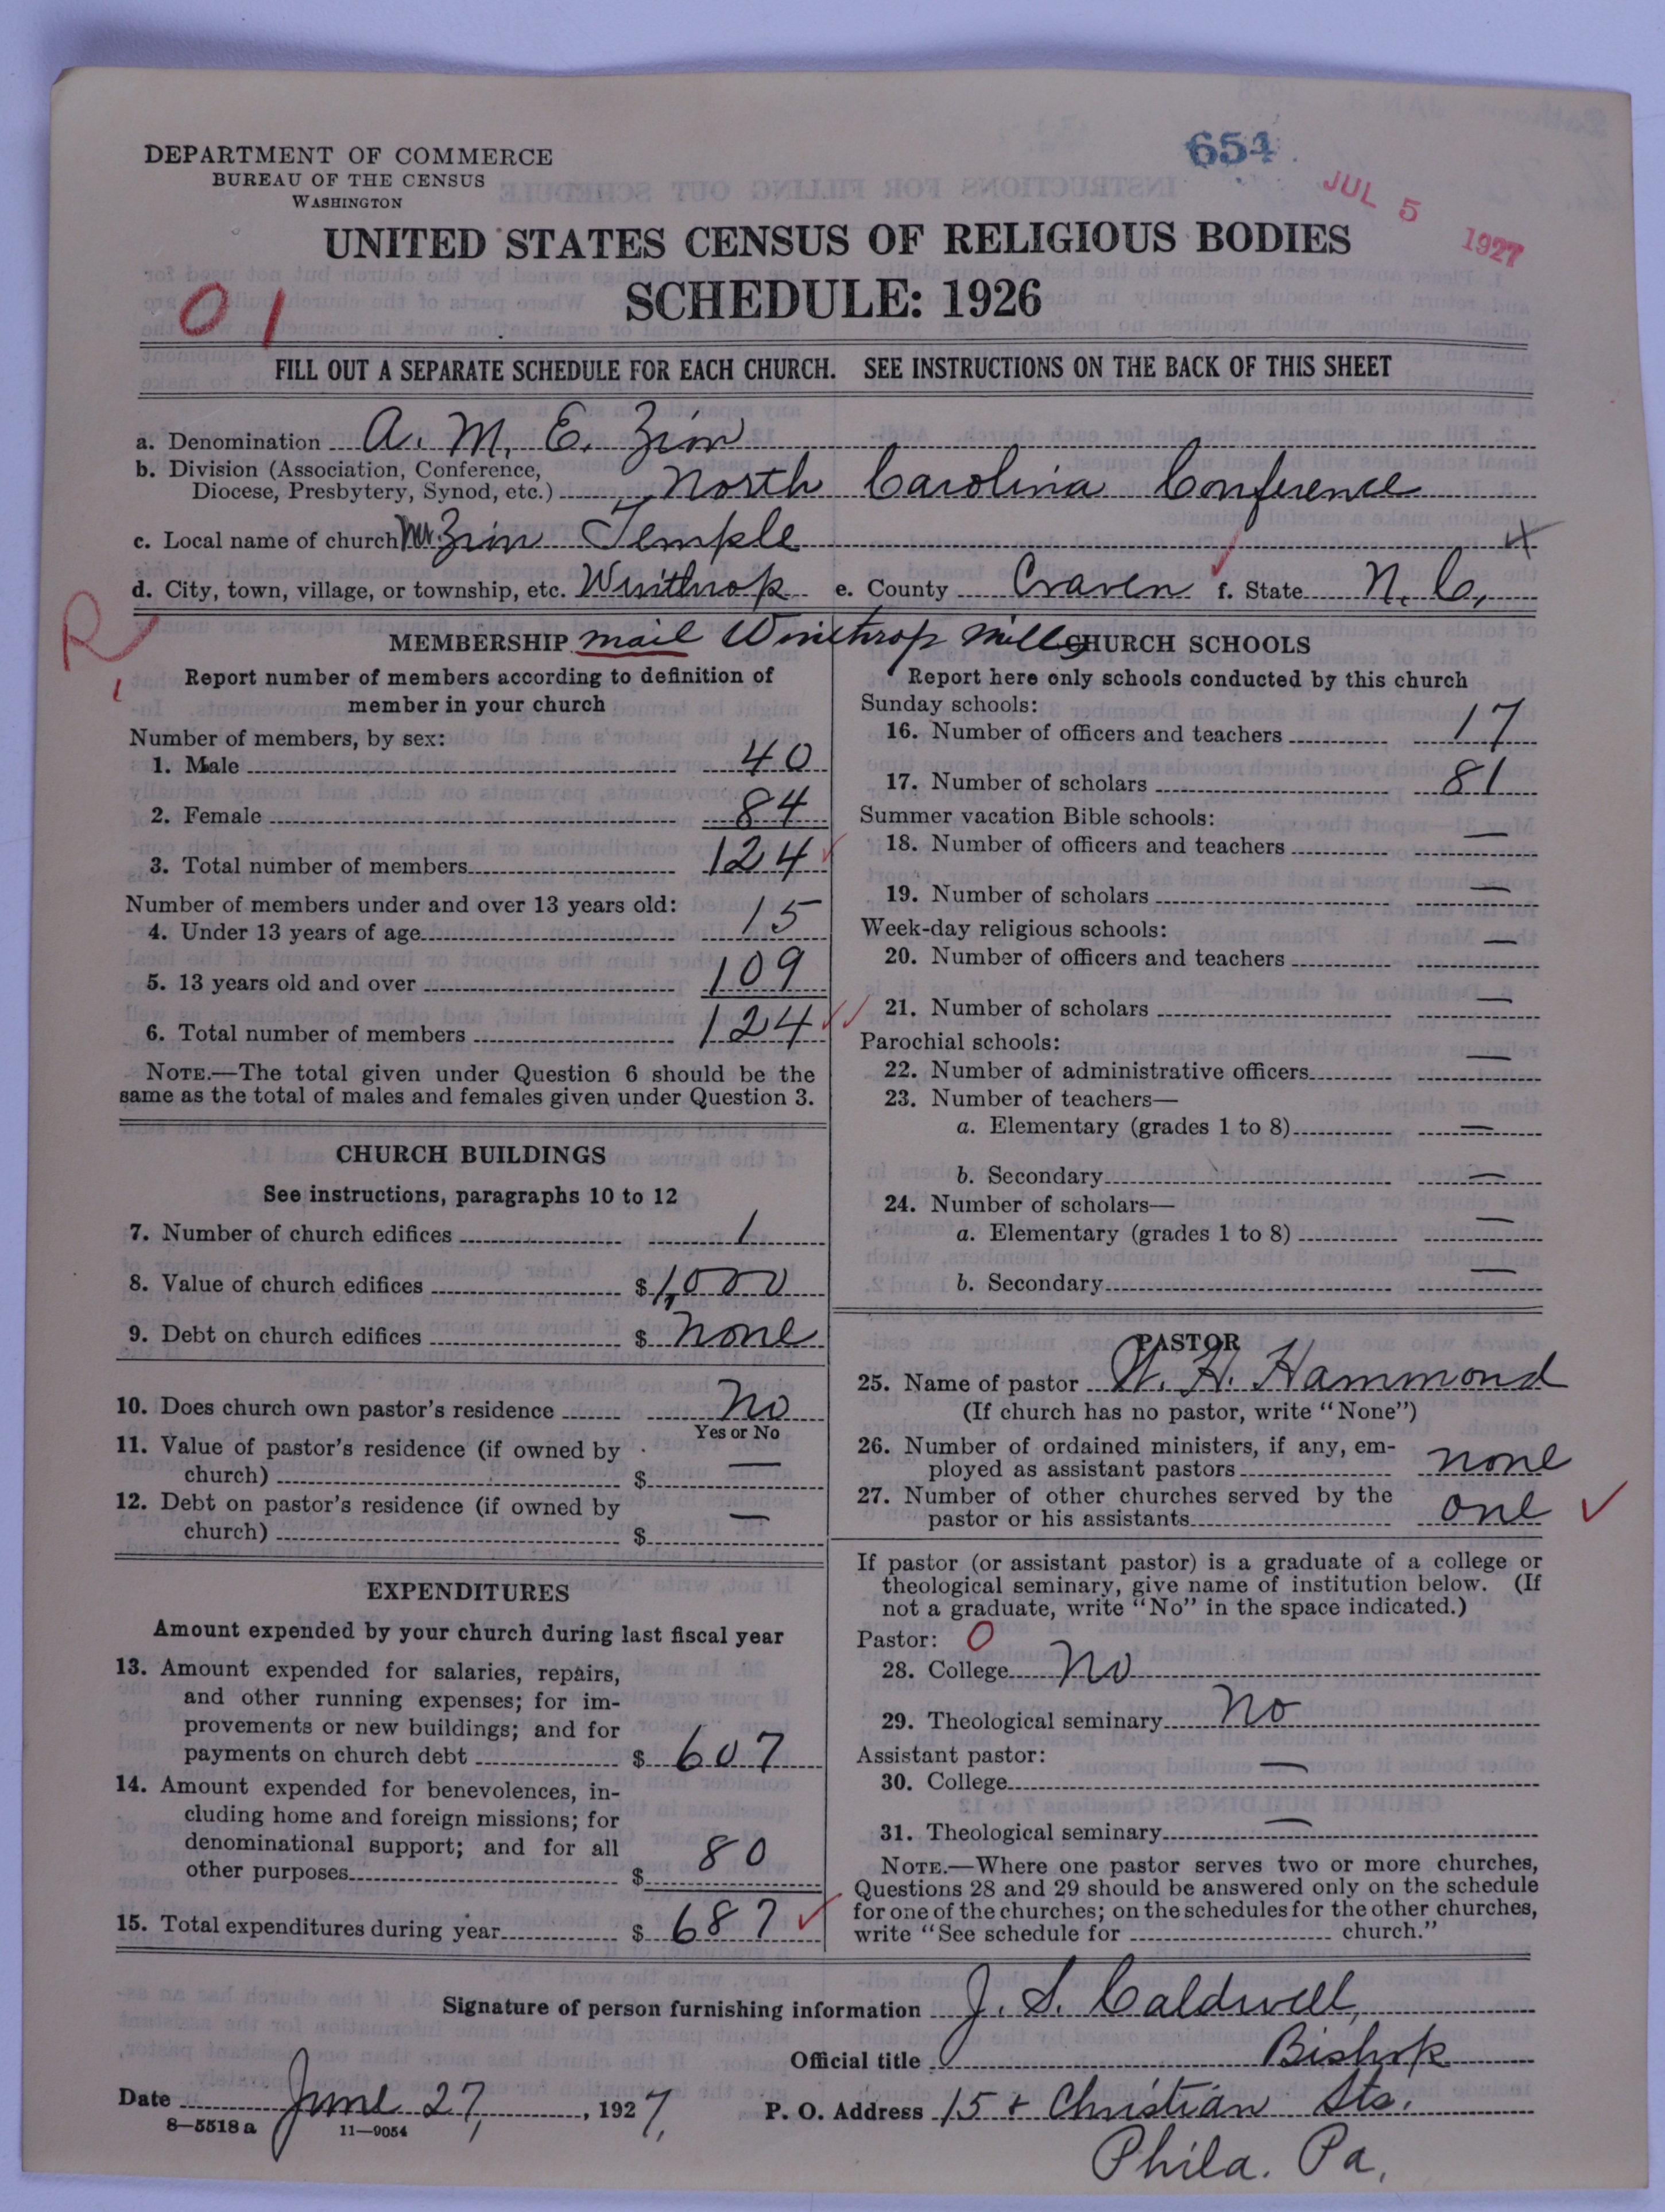 DEPARTMENT OF COMMERCE
BUREAU OF THE CENSUS
WASHINGTON
654
JUL 5 1927
UNITED STATES CENSUS OF RELIGIOUS BODIES
SCHEDULE: 1926
01
FILL OUT A SEPARATE SCHEDULE FOR EACH CHURCH. SEE INSTRUCTIONS ON THE BACK OF THIS SHEET
a. Denomination A. M. E. Zion
b. Division (Association, Conference,
Diocese, Presbytery, Synod, etc.) North Carolina Conference
c. Local name of church Mt. Zion Temple
d. City, town, village, or township, etc. Winthrop e. County Craven f. State N. C.
R
MEMBERSHIP mail Winthrop Mills
Report number of members according to definition of
member in your church
Number of members, by sex:
1. Male 40
2. Female 84
3. Total number of members 124
Number of members under and over 13 years old:
4. Under 13 years of age 15
5. 13 years old and over 109
6. Total number of members 124
NOTE.—The total given under Question 6 should be the
same as the total of males and females given under Question 3.
CHURCH BUILDINGS
See instructions, paragraphs 10 to 12
7. Number of church edifices 1
8. Value of church edifices $1,000
9. Debt on church edifices $ none
10. Does church own pastor's residence No
Yes or No
11. Value of pastor's residence (if owned by
church) $ —
12. Debt on pastor's residence (if owned by
church) $ —
EXPENDITURES
Amount expended by your church during last fiscal year
13. Amount expended for salaries, repairs,
and other running expenses; for im-
provements or new buildings; and for
payments on church debt $ 607
14. Amount expended for benevolences, in-
cluding home and foreign missions; for
denominational support; and for all
other purposes $ 80
15. Total expenditures during year $ 687
CHURCH SCHOOLS
Report here only schools conducted by this church
Sunday schools:
16. Number of officers and teachers 17
17. Number of scholars 81
Summer vacation Bible schools:
18. Number of officers and teachers —
19. Number of scholars —
Week-day religious schools:
20. Number of officers and teachers —
21. Number of scholars —
Parochial schools:
22. Number of administrative officers —
23. Number of teachers—
a. Elementary (grades 1 to 8) —
b. Secondary —
24. Number of scholars—
a. Elementary (grades 1 to 8) —
b. Secondary —
PASTOR
25. Name of pastor W. H. Hammond
(If church has no pastor, write "None")
26. Number of ordained ministers, if any, em-
ployed as assistant pastors none
27. Number of other churches served by the
pastor or his assistants one
If pastor (or assistant pastor) is a graduate of a college or
theological seminary, give name of institution below. (If
not a graduate, write "No" in the space indicated.)
Pastor: 0
28. College No
29. Theological seminary No
Assistant pastor:
30. College —
31. Theological seminary —
NOTE.—Where one pastor serves two or more churches,
Questions 28 and 29 should be answered only on the schedule
for one of the churches; on the schedules for the other churches,
write "See schedule for church."
Signature of person furnishing information J. S. Caldwell,
Official title Bishop
Date June 27, 1927, P. O. Address 15 + Christian Sts.
8—5518 a 11—9054
Phila. Pa.